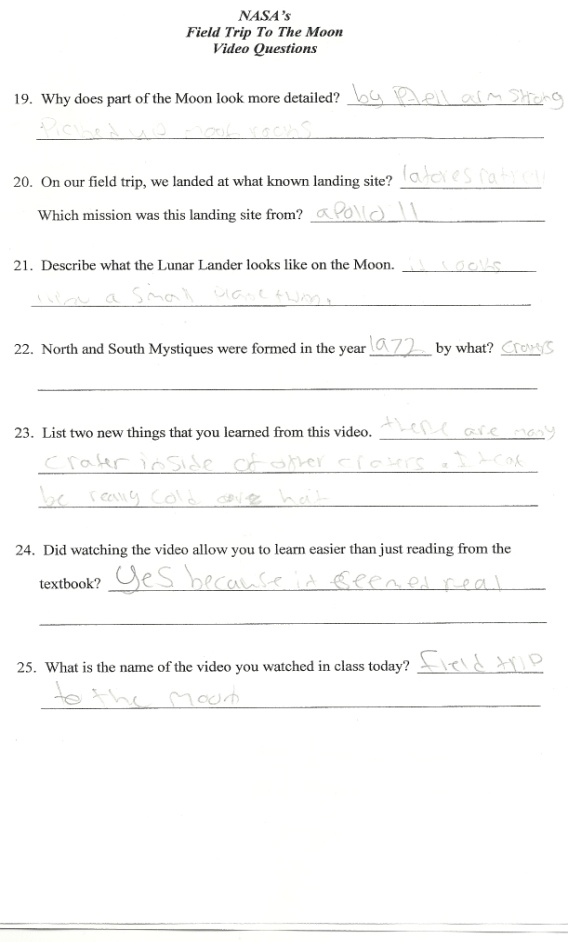 NASA's
Field Trip To The Moon
Video Questions
19. Why does part of the Moon look more detailed? by arm strong
Picked up rocks
20. On our field trip, we landed at what known landing site?
Which mission was this landing site from? apollo 11
21. Describe what the Lunar Lander looks like on the Moon. it looks
a small
22. North and South Mystiques were formed in the year 1972 by what?
23. List two new things that you learned from this video. there are many
crater inside of other . I
be really cold
24. Did watching the video allow you to learn easier than just reading from the
textbook? Yes because it seemed real
25. What is the name of the video you watched in class today? field trip
to the moon